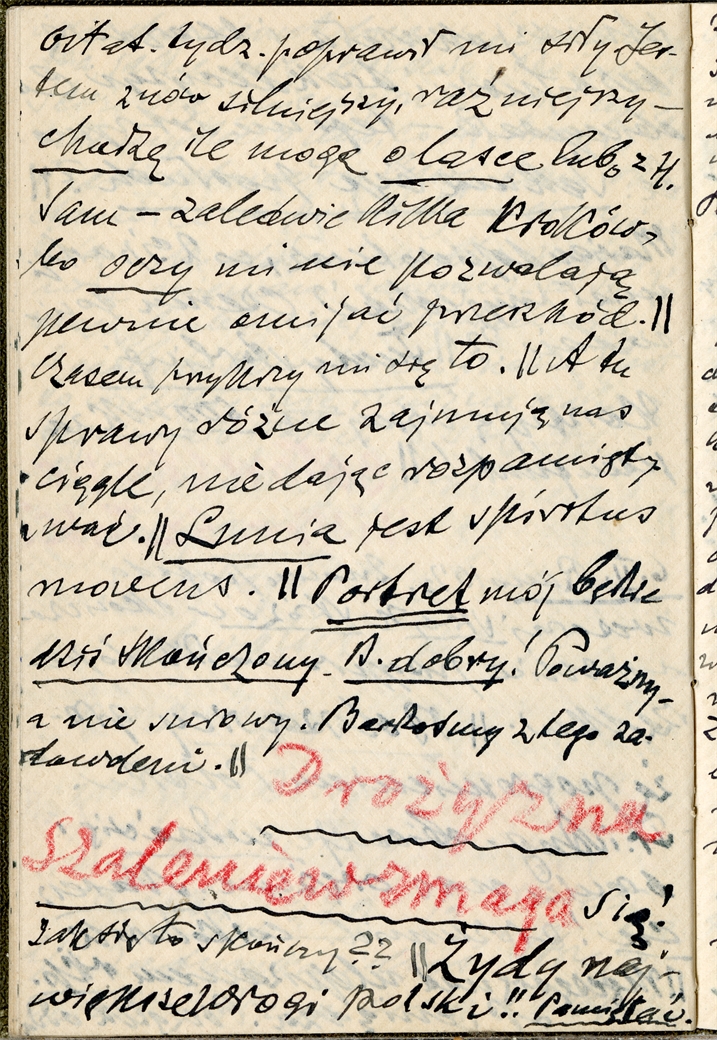 tydz. poprawił mi siły. Jes-
tem znów silniejszy, raźniejszy —
chodzę ile mogę o lasce lub z H.
Sam — zaledwie kilka kroków,
bo oczy mi nie pozwalają
pewnie omijać przeszkód. ||
Czasem przykrzy mi się to. || A tu
sprawy różne zajmują nas
ciągle, nie dając rozpamięty
wać. || Lunia jest spiritus
movens. || Portret mój będzie
dziś skończony. B. dobry! Poważny —
a nie surowy. Bartosmy z tego za-
dowoleni. ||
Drożyzna
szalenie wzmaga się!
Jak się to skończy?? || Żydy naj-
większe wrogi Polski!! Pamiętać.